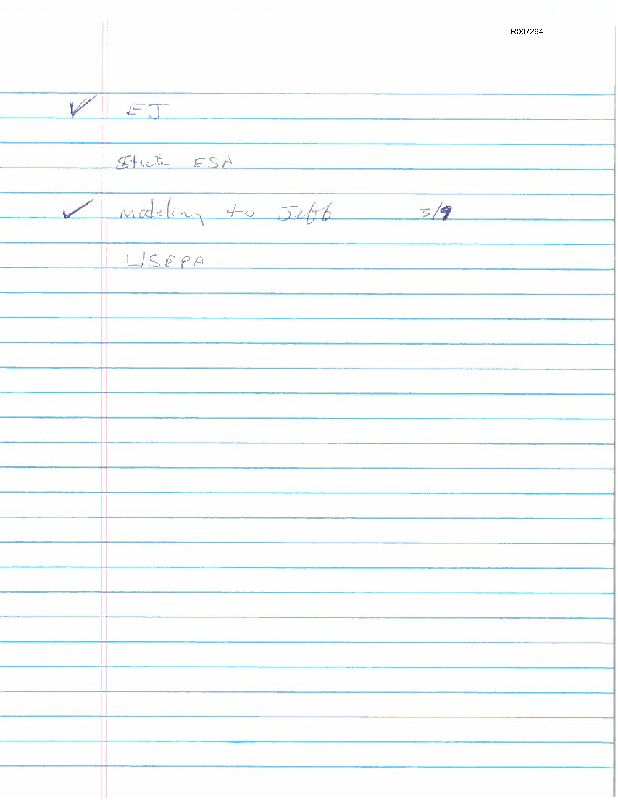 R007294
✓ EJ
State ESA
✓ Modeling to Jeff 3/9
USEPA